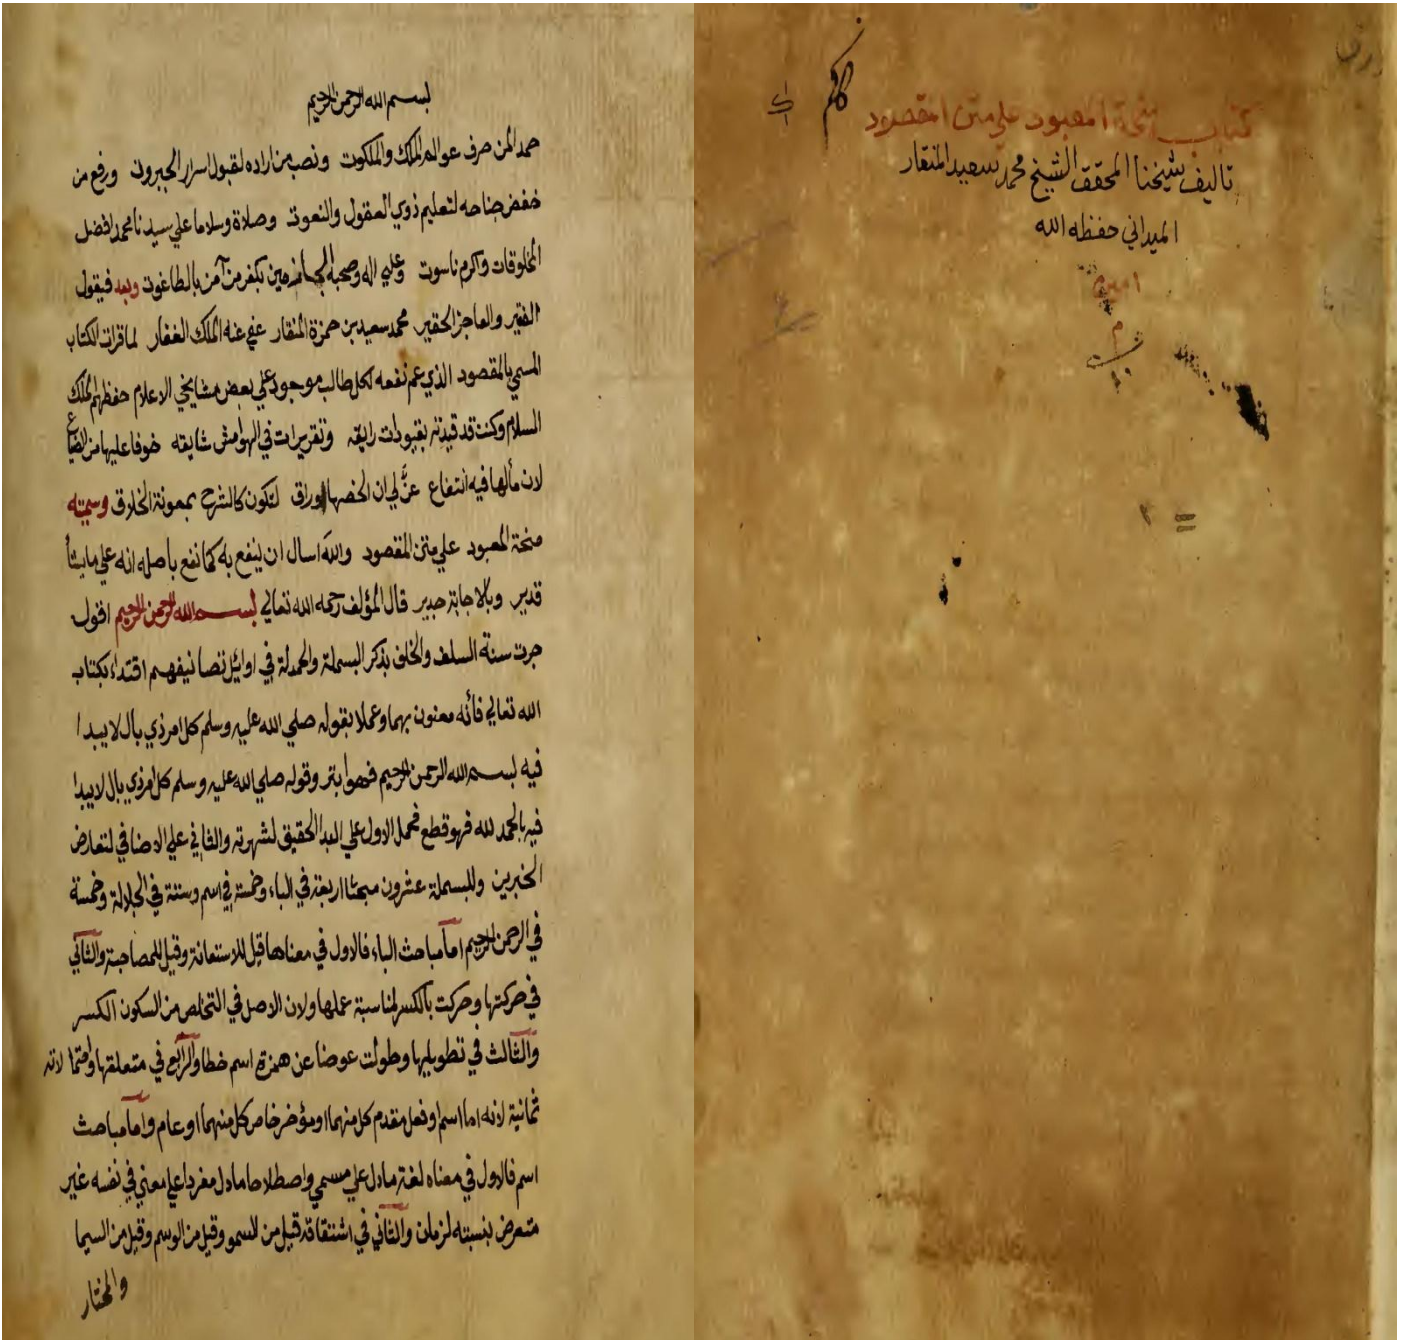 كتاب منحة المعبود على متن المقصود
تاليف شيخنا المحقق الشيخ محمد سعيد المنقار
الميداني حفظه الله
امين
م
بسم الله الرحمن الرحيم
حمدا لمن صرف عوالم الملك والملكوت ونصب من اراده لقبول اسرار الجبروت ورفع من
خفض جناحه لتعليم ذوي العقول والنعوت وصلاة وسلاما علي سيدنا محمد افضل
المخلوقات واكرم ناسوت وعلي اله وصحبه الجازمين بكفر من آمن بالطاغوت وبعد فيقول
الفقير والعاجز الحقير محمد سعيد بن حمزة المنقار عفي عنه الملك الغفار لما قرات الكتاب
المسمي بالمقصود الذي عم نفعه لكل طالب موجود علي بعض مشايخي الاعلام حفظهم الملك
السلام وكنت قد قيدته بقيودات رايقه وتقريرات في الهوامش شايقه خوفا عليها من الضياع
لان مألها فيه انتفاع عنَّ لي ان الخصها اوراق لتكون كالشرح بمعونة الخلاق وسميته
منحة المعبود علي متن المقصود والله اسال ان ينفع به كما نفع بأصله انه علي ما يشأ
قدير وبالاجابة جدير قال المؤلف رحمه الله تعالي بسم الله الرحمن الرحيم اقول
جرت سنة السلف والخلف بذكر البسملة والحمدلة في اوايئل تصانيفهم اقتداء بكتاب
الله تعالي فأنه معنون بهما وعملا بقوله صلي الله عليه وسلم كل امر ذي بال لا يبدا
فيه بسم الله الرحمن الرحيم فهو ابتر وقوله صلي الله عليه وسلم كل امر ذي بال لا يبدا
فيه بالحمد لله فهو قطع فحمل الاول علي البدا الحقيقي لشهرته والثاني علي الاضافي لتعارض
الخبرين وللبسملة عشرون مبحثا اربعة في الباء وخمسة في اسم وستة في الجلالة وخمسة
في الرحمن الرحيم امأ مباحث الباء فالاول في معناها قيل للاستعانة وقيل للمصاحبة والثاني
في حركتها وحركت بالكسر لمناسبة عملها ولان الاصل في التخلص من السكون الكسر
والثالث في تطويلها وطولت عوضا عن همزة اسم خطا والرابع في متعلقها واحتمالاته
ثمانية لانه اما اسم او فعل مقدم كل منهما او مؤخر خاص كل منهما او عام واما مباحث
اسم فالاول في معناه لغة ما دل علي مسمي واصطلاحا ما دل مفردا علي معني في نفسه غير
متعرض بنسبته لزمان والثاني في اشتقاقه قيل من السمو وقيل من الوسم وقيل من السيما
والمختار